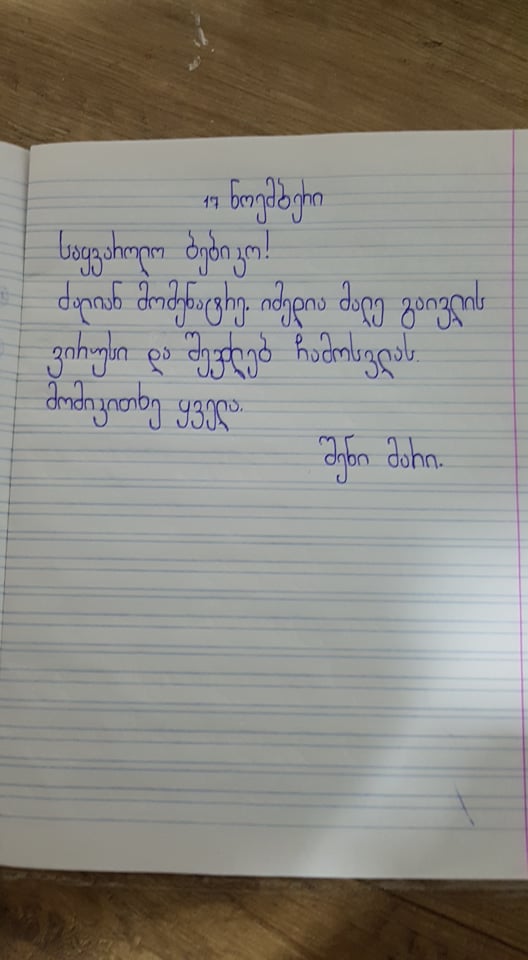 17 ნოემბერი
საყვარელო ბებიკო!
ძალიან მომენატრე. იმედია მალე გაივლის
ვირუსი და შევძლებ ჩამოსვლას.
მომიკითხე ყველა.
შენი მარი.